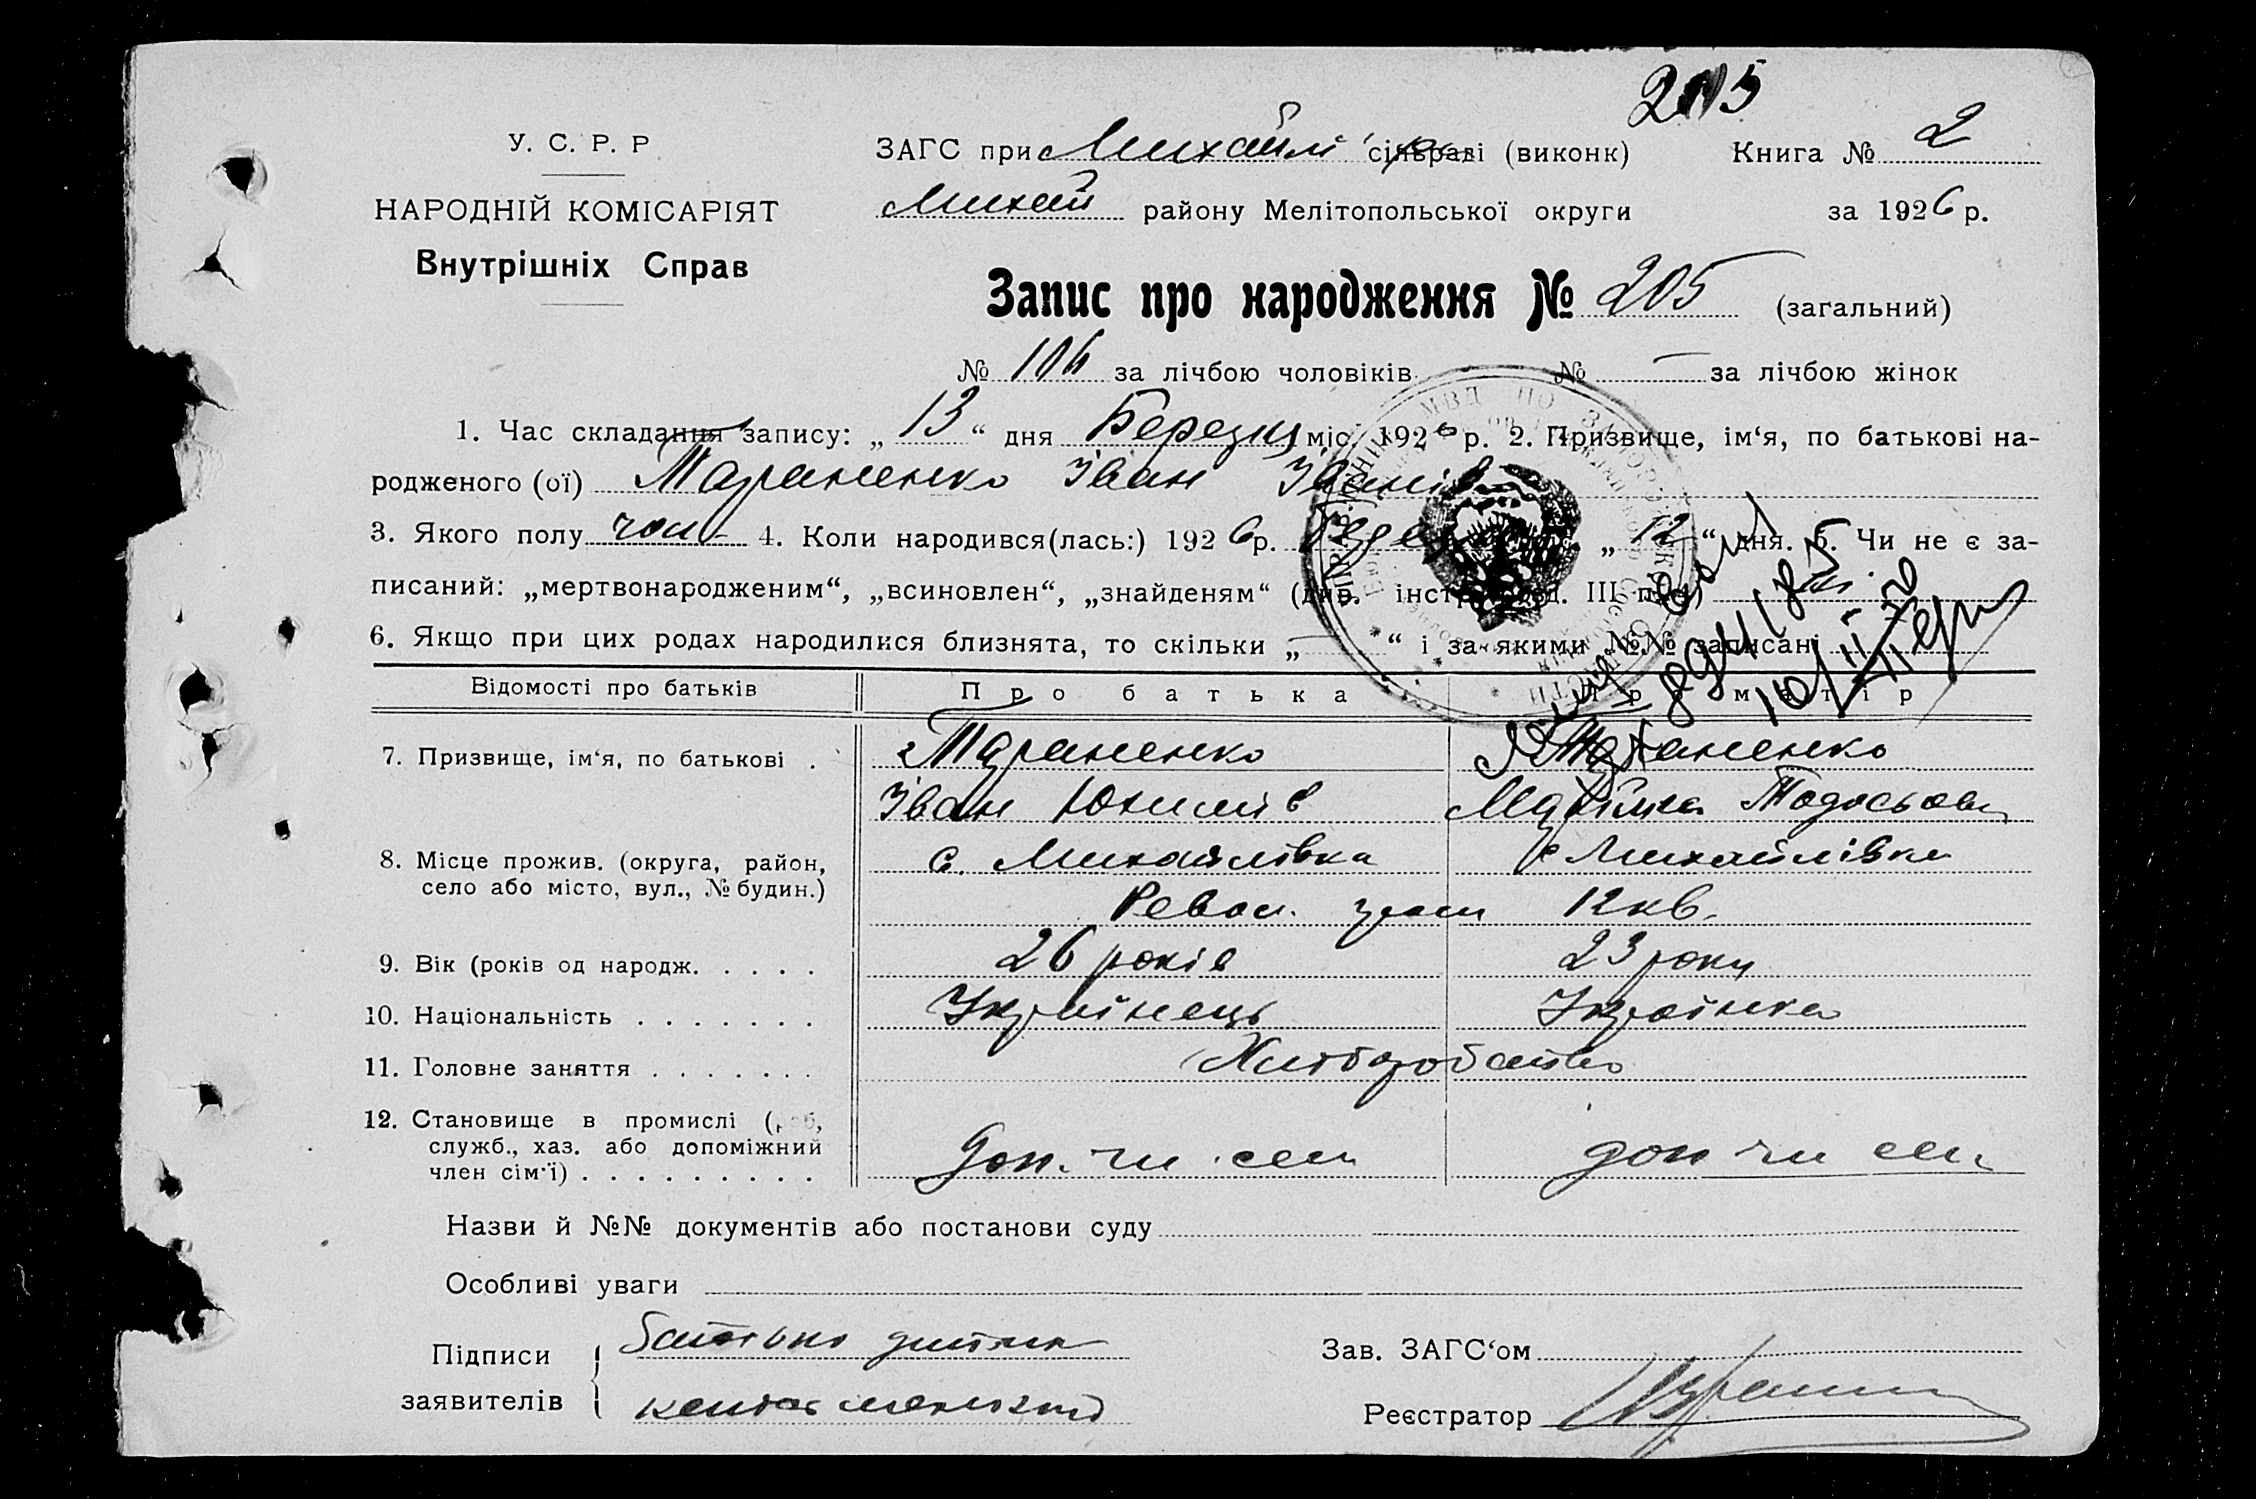 205
У. С. Р. Р
ЗАГС при Михайлі сільраді (виконк) Книга № 2
НАРОДНІЙ КОМІСАРІЯТ
Михай району Мелітопольської округи за 1926 р.
Внутрішніх Справ
Запис про народження № 205 (загальний)
№ 106 за лічбою чоловіків № — за лічбою жінок
1. Час складання запису: „ 13 “ дня Березня міс. 1926 р. 2. Призвище, ім‘я, по батькові на-
родженого (ої) Тараненко Іван Іванів
3. Якого полу чол. 4. Коли народився(лась:) 1926р. „ 12 “ дня. 5. Чи не є за-
писаний: „мертвонародженим“, „всиновлен“, „знайденям“ (див. інстр. розд. III
6. Якщо при цих родах народилися близнята, то скільки „ — “ і за якими №№ записані
Відомості про батьків Про батька Про матір
7. Призвище, ім‘я, по батькові . Тараненко Тараненко
Іван Юхимів Тодосьовн
8. Місце прожив. (округа, район, с. Михайлівка с Михайлівка
село або місто, вул., № будин.)
Револ. 12 кв.
9. Вік (років од народж. . . . . 26 років 23 роки
10. Національність . . . . . . . Українець Українка
11. Головне заняття . . . . . . . Хліборобство
12. Становище в промислі (роб,
служб., хаз. або допоміжний
член сім‘ї) . . . . . . . . . . доп. чл. сем доп чл сем
Назви й №№ документів або постанови суду
Особливі уваги
Підписи батько Зав. ЗАГС‘ом
заявителів Реєстратор